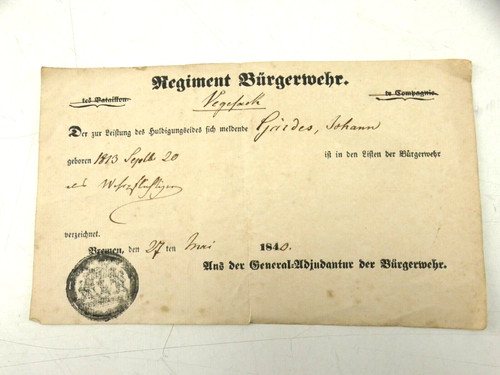 Regiment Bürgerwehr.
tes Bataillon te Compagnie
Vegesack
Der zur Leistung des Huldigungseides sich meldende Gerdes, Johann
geboren 1813 Septbr 20 ist in den Listen der Bürgerwehr
als Wehrpflichtiger
verzeichnet.
Bremen, den 27 ten Mai 1840.
Aus der General-Adjudantur der Bürgerwehr.